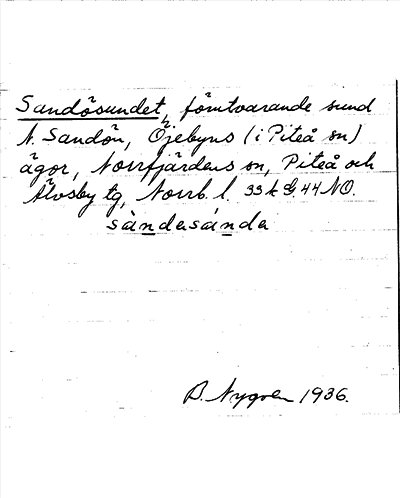 Sandösundet, förutvarande sund
N. Sandön, Öjebyns (i Piteå sn)
ägor, Norrfjärdens sn, Piteå och
Älvsby tg, Norrb. l. 33 k G, 44 NO.
sàndəsúndə
B. Nygren 1936.